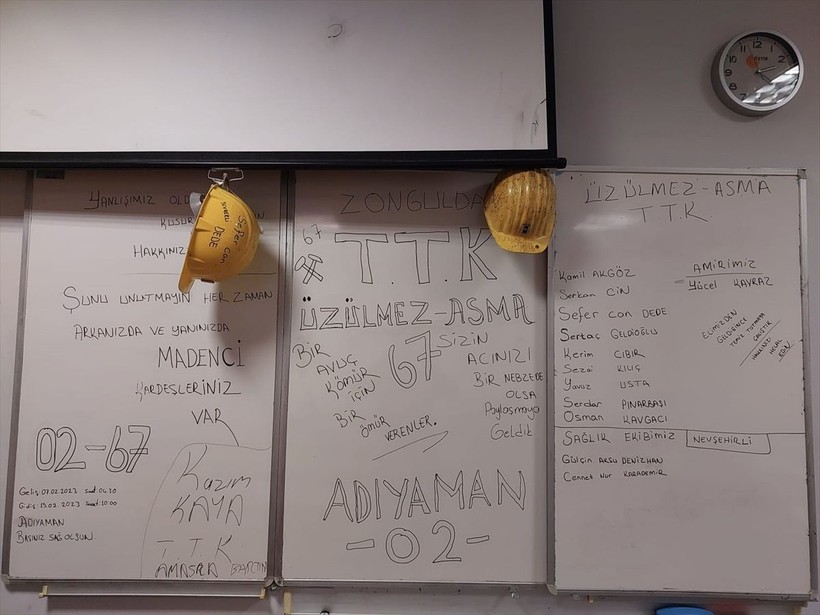 YANLIŞIMIZ
HAKKINIZ
ŞUNU UNUTMAYIN HER ZAMAN
ARKANIZDA VE YANINIZDA
MADENCİ
KARDEŞLERİNİZ
VAR
02-67
Geliş 07.02.2023 Saat 04.20
Gidiş 13.02.2023 Saat 10:00
ADIYAMAN
BAŞINIZ SAĞ OLSUN
Kazım
KAYA
T.T.K
AMASRA BARTIN
Sefer can
DEDE
ZONGULDA
67
T.T.K
ÜZÜLMEZ-ASMA
BİR
AVUÇ
KÖMÜR
İÇİN
BİR
ömür
VERENLER.
67
SİZİN
ACINIZI
BİR NEBZEDE
OLSA
Paylaşmaya
Geldik
ADIYAMAN
-02-
ÜZÜLMEZ-ASMA
T.T.K
Kamil AKGÖZ
Serkan CİN
Sefer can DEDE
Sertaç GELDİOĞLU
Kerim CIBIR
Sezai KILIÇ
Yavuz USTA
Serdar PINARBAŞI
Osman KAVGACI
AMİRİMİZ
Yücel KAVRAZ
ELİMİZDEN
GELDİĞİNCE
TEMİZ TUTMAYA
ÇALIŞTIK
HAKKINIZI HELAL
EDİN
SAĞLIK EKİBİMİZ NEVŞEHİRLİ
Gülçin AKSU DENİZHAN
Cennet Nur KARADEMİR
12
1
2
3
4
5
6
7
8
9
10
11